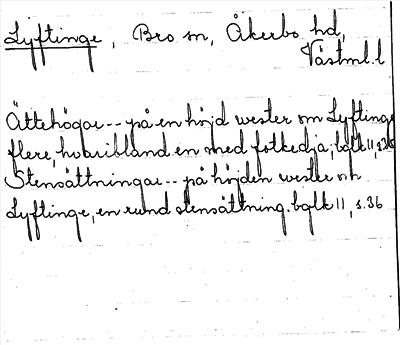 Lyftinge, Bro sn, Åkerbo hd,
Västml. l
Ättehögar -- på en höjd wester om Lyftinge
flere, hvaribland en med fotkedja; bqfk 11, s.36
Stensättningar -- på höjden wester om
Lyftinge, en rund stensättning. bqfk 11, s.36